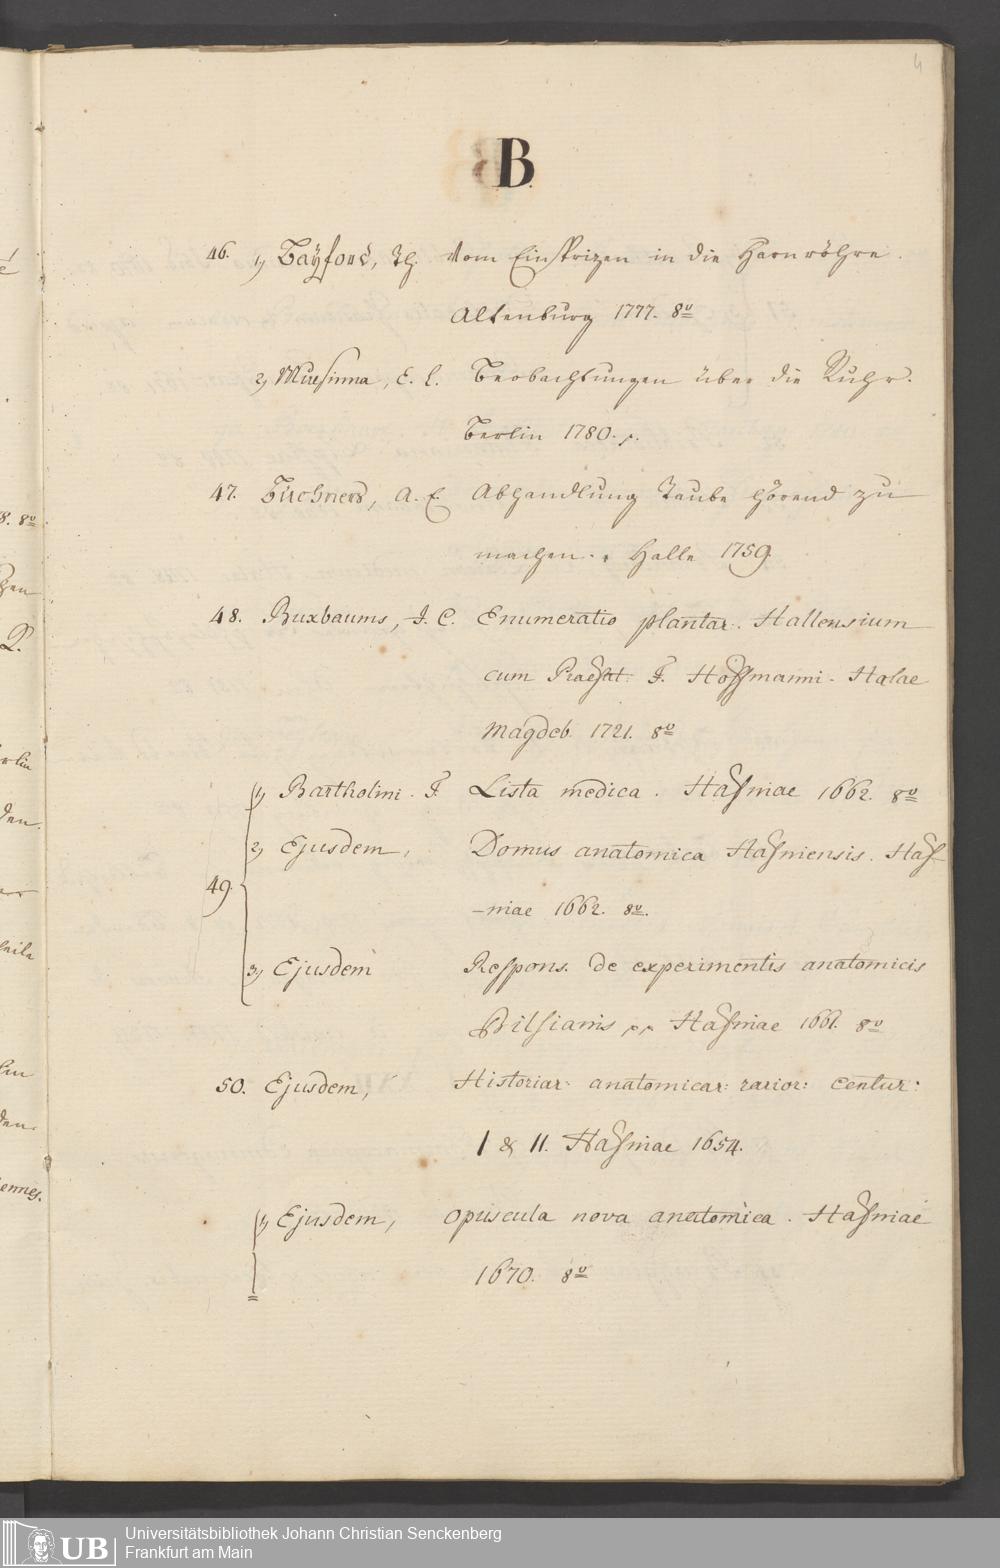 4
B
46. 1) Bayford, Th. Vom Einsprizen in die Harnröhre.
Altenburg 1777. 8º
2) Mursinna, C. L. Beobachtungen über die Ruhr.
Berlin 1780.
47. Büchners, A. E. Abhandlung Taube hörend zu
machen. Halle 1759.
48. Buxbaums, J. C. Enumeratio plantar. Hallensium
cum Praefat. F. Hoffmanni. Halae
Magdeb. 1721. 8º
49. 1) Bartholini. T. Lista medica. Hafniae 1662. 8º
2) Ejusdem, Domus anatomica Hafniensis. Haf-
-niae 1662. 8º.
3) Ejusdem Respons. de experimentis anatomicis
Bilsianis Hafniae 1661. 8º
50. Ejusdem, Historiar: anatomicar: rarior: Centur:
I & II. Hafniae 1654.
1) Ejusdem, Opuscula nova anatomica. Hafniae
1670. 8º
8º
ennes.
UB Universitätsbibliothek Johann Christian Senckenberg
Frankfurt am Main